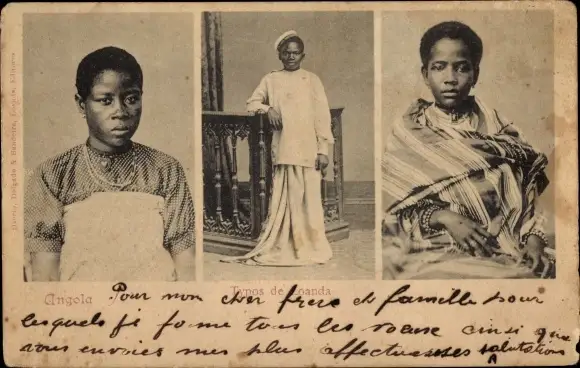 Angola
Typos de Loanda
Pour mon cher frère et famille pour
lesquels je forme tous les
vous envoies mes plus affectueuses salutations